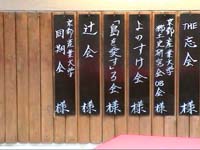 THE 忘会 様
京都産業大学
郷土史研究会OB会 様
よのすけ会 様
「島を愛す」る会 様
辻会 様
京都産業大学
同期会 様